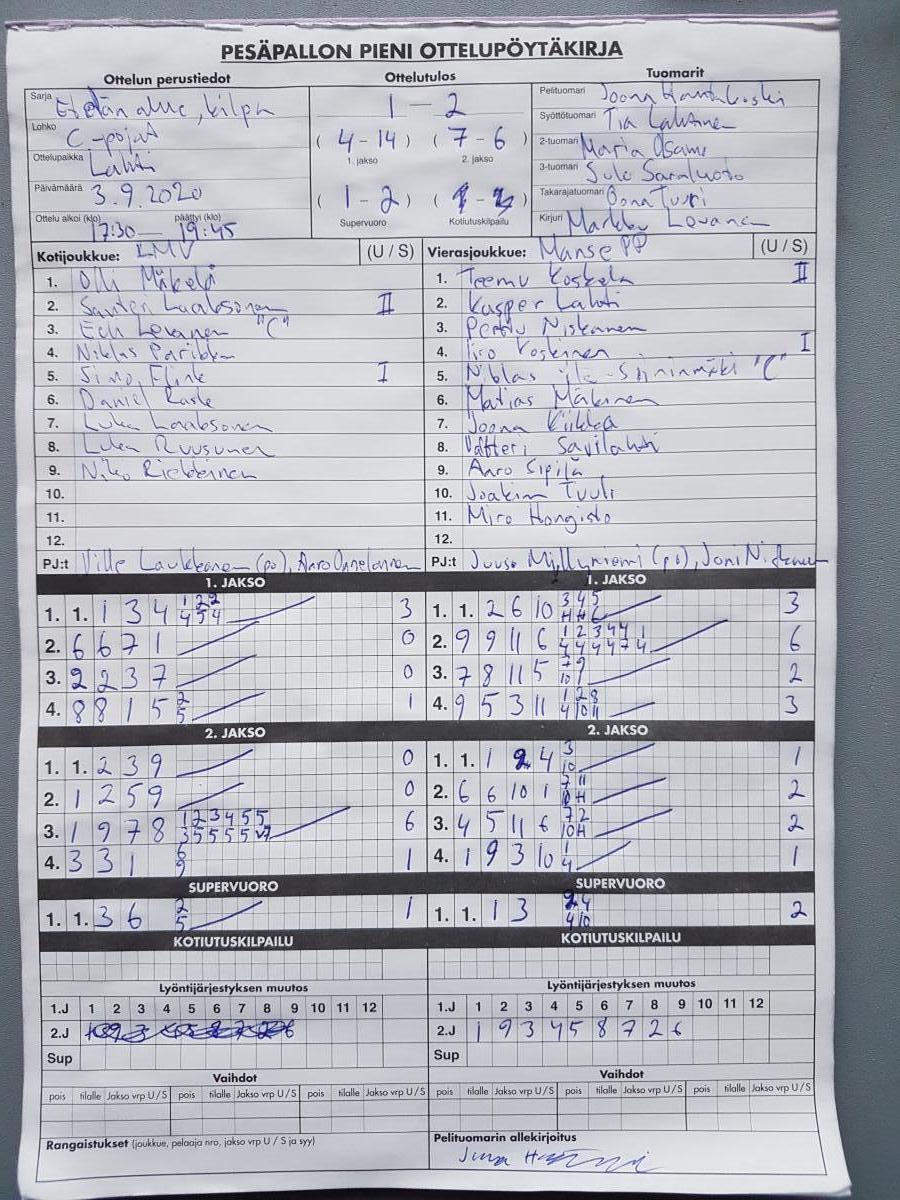 PESÄPALLON PIENI OTTELUPÖYTÄKIRJA
Ottelun perustiedot
Ottelutulos
Tuomarit
Sarja Etelän alue, kilpa
Lohko C-pojat
Ottelupaikka Lahti
Päivämäärä 3.9.2020
Ottelu alkoi (klo) päättyi (klo)
17:30 — 19:45
1 - 2
(4-14) (7-6)
1. jakso 2. jakso
(1-2) ( )
Supervuoro Kotiutuskilpailu
Pelituomari Joona
Syöttötuomari Tia Lahtinen
2-tuomari Maria
3-tuomari Sulo
Takarajatuomari Oona Tuuri
Kirjuri Markku Levanen
Kotijoukkue: LMV (U / S)
1. Olli Mäkelä
2. Santeri Laaksonen II
3. Levanen "C"
4. Niklas
5. Simo Flink I
6. Daniel
7. Luka Laaksonen
8. Luka Ruusunen
9. Niko
10.
11.
12.
PJ:t Ville Laukkanen (po), Aaro
Vierasjoukkue: Manse PP (U / S)
1. Teemu Koskela II
2. Kasper Lahti
3. Perttu Niskanen
4. Iiro Koskinen I
5. Niklas "C"
6. Matias Mäkinen
7. Joona Kiikka
8. Valtteri Savilahti
9. Aaro Sipilä
10. Joakim Tuuli
11. Miro Hongisto
12.
PJ:t Juuso Myllyniemi (po), Joni
1. JAKSO
1. 1. 1 3 4 1 2 2 3
4 5 4
2. 6 6 7 1 0
3. 2 2 3 7 0
4. 8 8 1 5 2 1
5
2. JAKSO
1. 1. 2 3 9 0
2. 1 2 5 9 0
3. 1 9 7 8 1 2 3 4 5 5 6
3 5 5 5 5
4. 3 3 1 1
9
SUPERVUORO
1. 1. 3 6 2 1
5
KOTIUTUSKILPAILU
Lyöntijärjestyksen muutos
1.J 1 2 3 4 5 6 7 8 9 10 11 12
2.J
Sup
Vaihdot
pois tilalle Jakso vrp U / S pois tilalle Jakso vrp U / S pois tilalle Jakso vrp U / S
Rangaistukset (joukkue, pelaaja nro, jakso vrp U / S ja syy)
1. JAKSO
1. 1. 2 6 10 3 4 5 3
2. 9 9 11 6 1 2 3 4 4 1 6
4 4 4 4 7 4
3. 7 8 11 5 7 9 2
10
4. 9 5 3 11 1 2 8 3
4 10 11
2. JAKSO
1. 1. 1 2 4 3 1
10
2. 6 6 10 1 7 11 2
3. 4 5 11 6 7 2 2
4. 1 9 3 10 1 1
4
SUPERVUORO
1. 1. 1 3 2 4 2
4 10
KOTIUTUSKILPAILU
Lyöntijärjestyksen muutos
1.J 1 2 3 4 5 6 7 8 9 10 11 12
2.J 1 9 3 4 5 8 7 2 6
Sup
Vaihdot
pois tilalle Jakso vrp U / S pois tilalle Jakso vrp U / S pois tilalle Jakso vrp U / S
Pelituomarin allekirjoitus